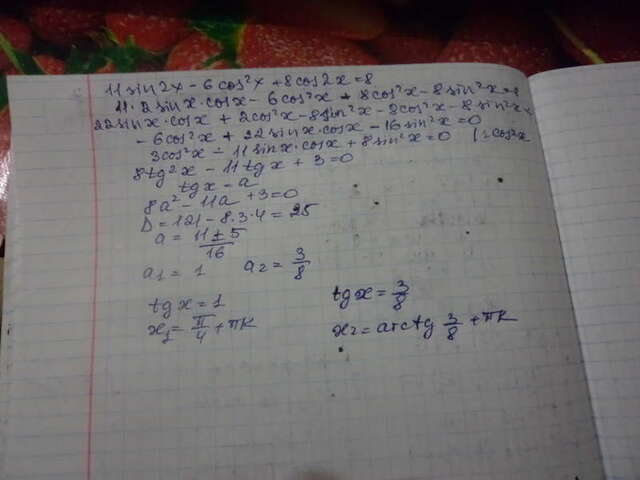 11 sin2x - 6cos²x + 8cos2x = 8
11·2sinx·cosx - 6cos²x + 8cos²x - 8sin²x = 8
22sinx·cosx + 2cos²x - 8sin²x - 8cos²x - 8sin²x =
- 6cos²x + 22sinx·cosx - 16sin²x = 0
3cos²x - 11sinx·cosx + 8sin²x = 0 | : cos²x
8tg²x - 11tgx + 3 = 0
tgx = a
8a² - 11a + 3 = 0
D = 121 - 8·3·4 = 25
a = (11 ± 5)/16
a₁ = 1 a₂ = 3/8
tgx = 1 tgx = 3/8
x₁ = π/4 + πk x₂ = arctg 3/8 + πk